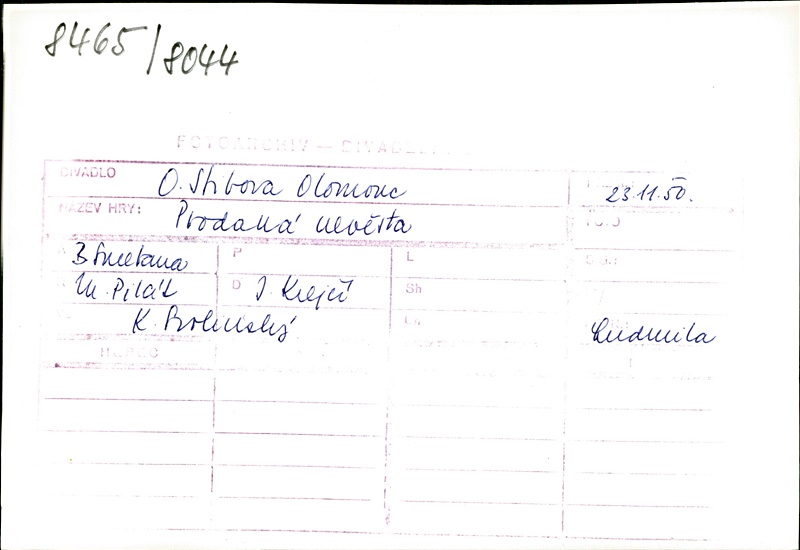 8465/8044
FOTOARCHIV — DIVADELN
DIVADLO O. Stibora Olomouc 23.11.50.
NÁZEV HRY: Prodaná nevěsta
B Smetana P L
M. Pilát D J. Krejčí Sh
K. Ludmila
HEREC